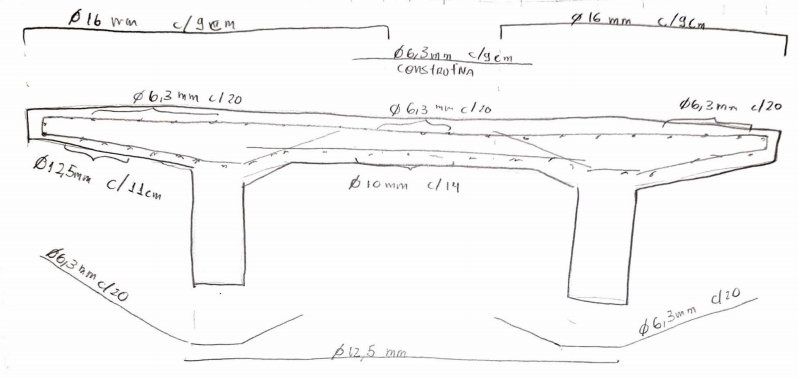 Ø16 mm c/9cm
Ø16 mm c/9cm
Ø6,3mm c/9cm
CONSTRUTIVA
Ø6,3mm c/20
Ø6,3mm c/20
Ø6,3mm c/20
Ø12,5mm c/11cm
Ø10mm c/14
Ø6,3mm c/20
Ø6,3mm c/20
Ø12,5 mm